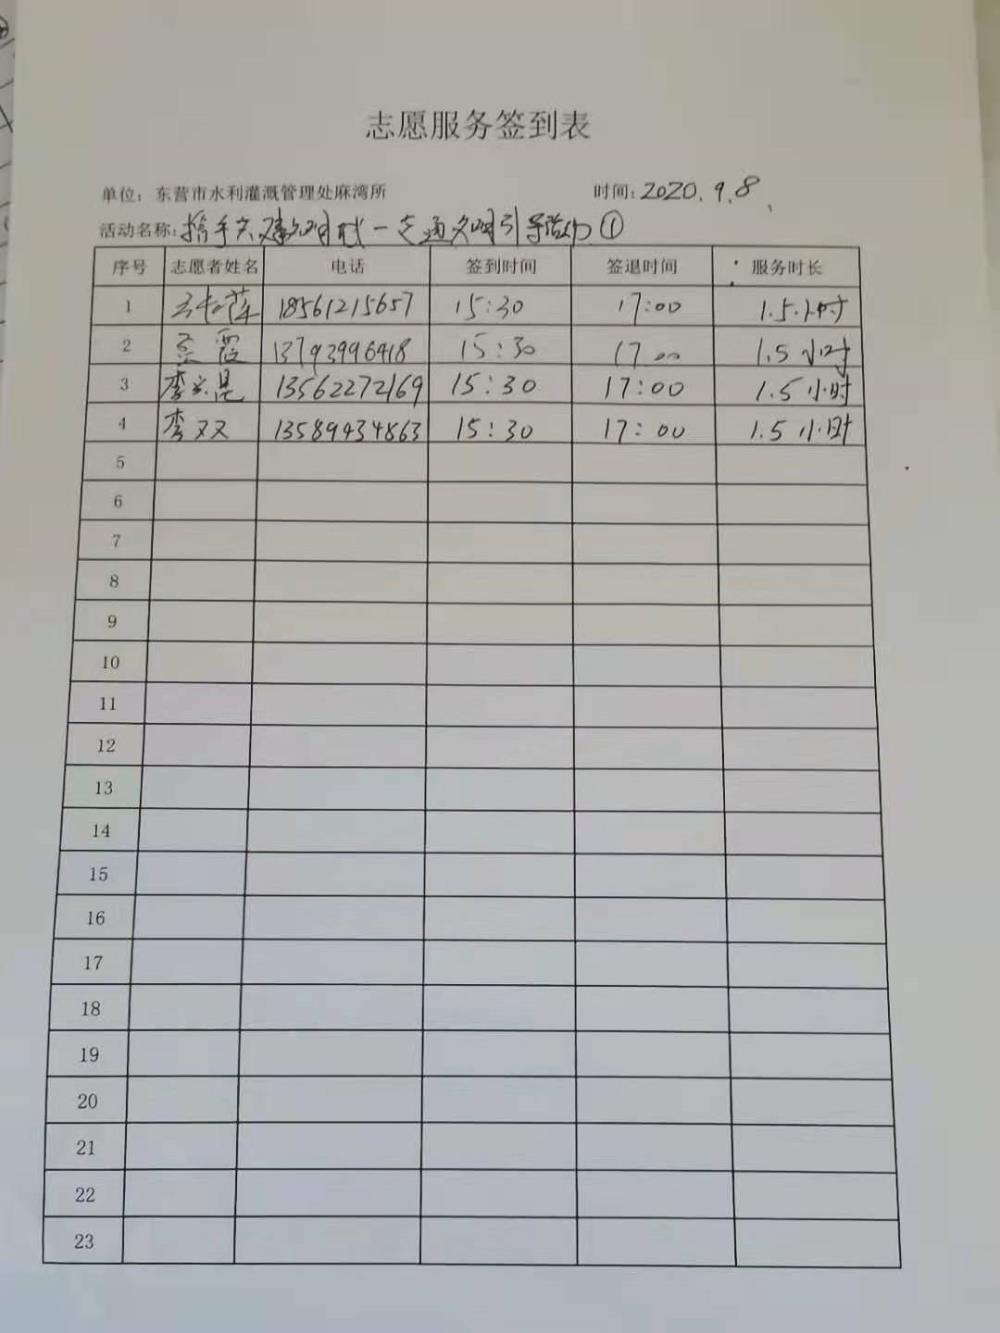 志愿服务签到表
单位：东营市水利灌溉管理处麻湾所 时间：2020.9.8
活动名称：携手共建文明城—交通文明引导活动①
序号 志愿者姓名 电话 签到时间 签退时间 服务时长
1 18561215657 15:30 17:00 1.5小时
2 霞 13793996418 15:30 17:00 1.5小时
3 李 13562272169 15:30 17:00 1.5小时
4 李双 13589434863 15:30 17:00 1.5小时
5
6
7
8
9
10
11
12
13
14
15
16
17
18
19
20
21
22
23